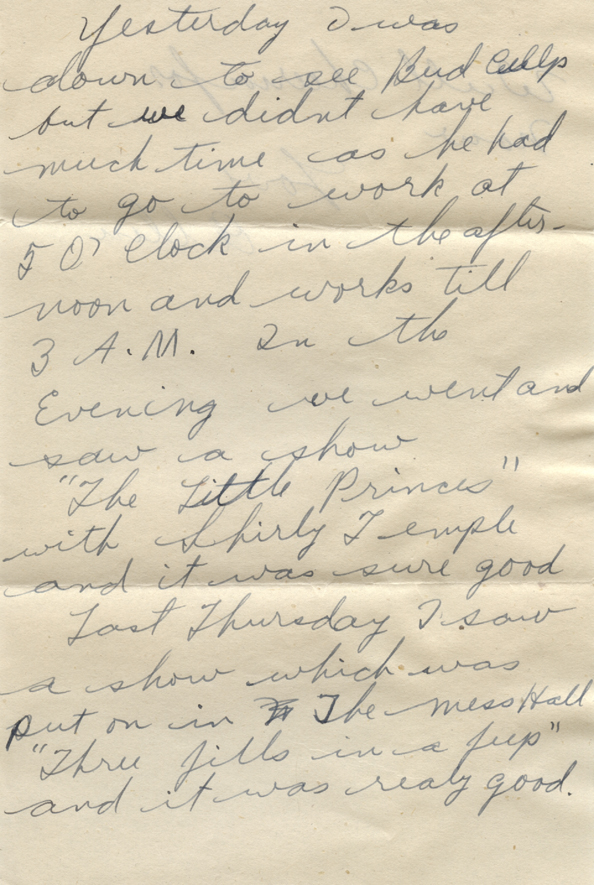 Yesterday I was
down to see Bud Culps
but we didnt have
much time as he had
to go to work at
5 O' Clock in the after-
noon and works till
3 A.M. In the
Evening we went and
saw a show
"The Little Princes"
with Shirly Temple
and it was sure good
Last Thursday I saw
a show which was
put on in The mess Hall
"Three jills in a jeep"
and it was realy good.